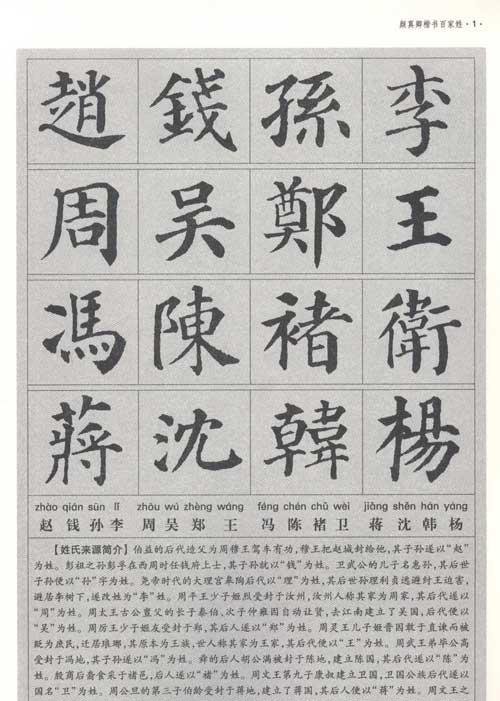 颜真卿楷书百家姓·1·
趙錢孫李
周吴鄭王
馮陳褚衛
蔣沈韓楊
zhào qián sūn lǐ zhōu wú zhèng wáng féng chén chǔ wèi jiǎng shěn hán yáng
赵 钱 孙 李 周 吴 郑 王 冯 陈 褚 卫 蒋 沈 韩 杨
【姓氏来源简介】伯益的后代造父为周穆王驾车有功，穆王把赵城封给他，其子孙遂以“赵”
为姓。彭祖之孙彭孚在西周时任钱府上士，其子孙就以“钱”为姓。卫武公的儿子名惠孙，其后世
子孙便以“孙”字为姓。尧帝时代的大理官皋陶后代以“理”为姓，其后世孙理利贞逃避纣王迫害，
避居李树下，遂改姓为“李”姓。周平王少子姬烈受封于汝州，汝州人称其家为周家，其后代遂以
“周”为姓。周太王古公亶父的长子泰伯，次子仲雍因自动让贤，去江南建立了吴国，后代便以
“吴”为姓。周厉王少子姬友受封于郑，其后人遂以“郑”为姓。周灵王儿子姬晋因敢于直谏而被
贬为庶民，迁居琅琊，其原本为王族，世人称其家为王家，其后代便以“王”为姓。周武王弟毕公高
受封于冯地，其子孙遂以“冯”为姓。舜的后人胡公满被封于陈地，建立陈国，其后代遂以“陈”为
姓。殷商后裔食采于褚邑，后人遂以“褚”为姓。周文王第九子康叔建立卫国，卫国公族后代遂以
国名“卫”为姓。周公旦的第三子伯龄受封于蒋地，建立了蒋国，其后人便以“蒋”为姓。周文王之